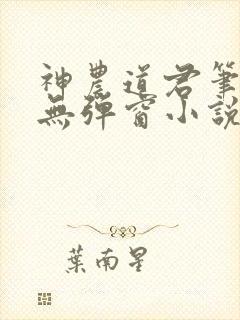 神農道君筆
無彈窗小說
葉南星